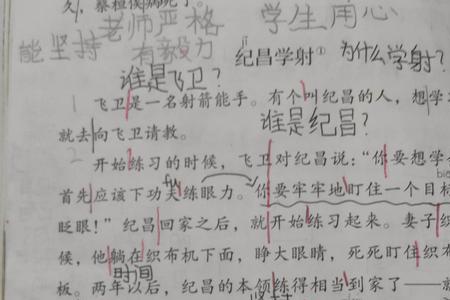 久，蔡桓侯病死了。
老师严格 学生用心
能坚持 有毅力
jì
纪昌学射① 为什么学射？
谁是飞卫？
1 飞卫是一名射箭能手。有个叫纪昌的人，想学
谁是纪昌？
就去向飞卫请教。
2 开始练习的时候，飞卫对纪昌说：“你要想学
fu
首先应该下功夫练眼力。你要牢牢地盯住一个目标
眨眼！”纪昌回家之后，就开始练习起来。妻子织
候，他躺在织布机下面，睁大眼睛，死死盯住织布
时间
板。两年以后，纪昌的本领练得相当到家了——就